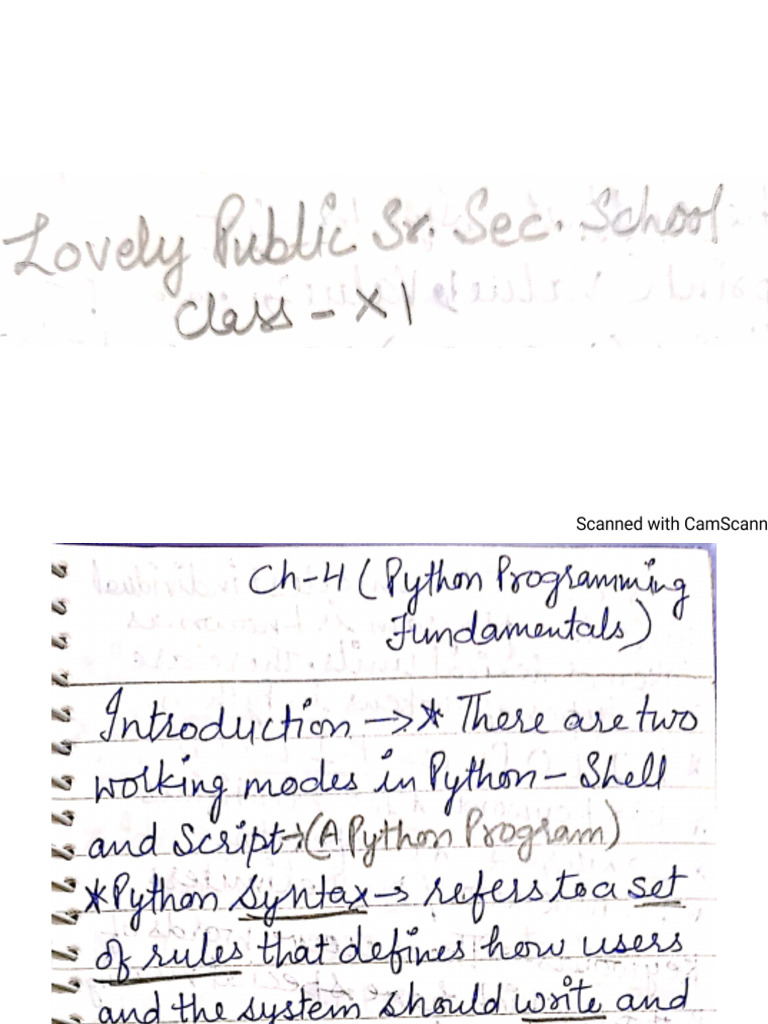 Lovely Public Sr. Sec. School
Class - XI
Scanned with CamScann
Ch-4 (Python Programming
Fundamentals)
Introduction →* There are two
working modes in Python - Shell
and Script→(A Python Program)
*Python syntax→ refers to a set
of rules that defines how users
and the system should write and